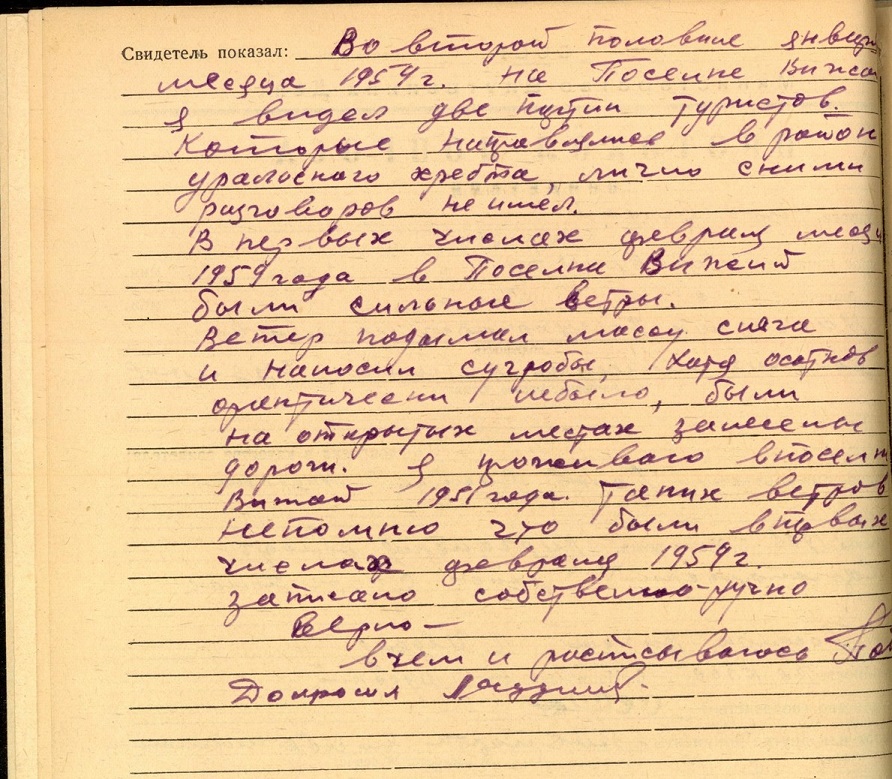 Свидетель показал: Во второй половине январ
месяца 1959 г. на Поселке Вижаи
я видел две путии туристов.
Которые направлялись в район
уральского хребта, лично сними
разговоров не имел.
В первых числах февраля меся
1959 года в Поселки Вижай
были сильные ветры.
Ветер подымал массу снега
и наносил сугробы, хотя осатков
практически небыло, были
на открытых местах занесены
дороги. я проживаю впоселк
Вижай 1951 года. Таких ветров
непомню что были впрвых
числах февраля 1959 г.
записано собственно-ручно
Верно —
вчем и россписываюсь
Допросил